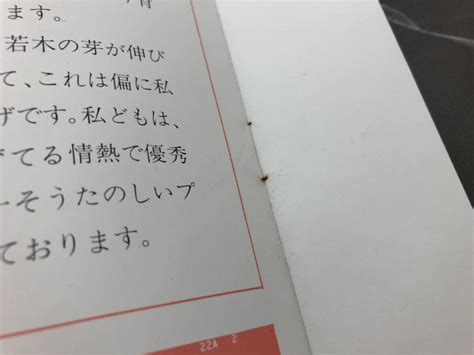 ます。
若木の芽が伸び
て、これは偏に私
げです。私どもは、
てる情熱で優秀
ーそうたのしいプ
ております。
22A 2